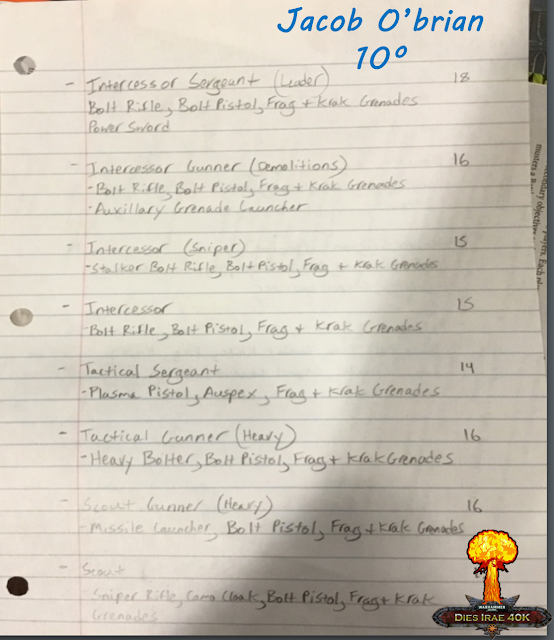 Jacob O'brian
10º
- Intercessor Sergeant (Leader) 18
Bolt Rifle, Bolt Pistol, Frag + Krak Grenades
Power Sword
- Intercessor Gunner (Demolitions) 16
- Bolt Rifle, Bolt Pistol, Frag + Krak Grenades
- Auxillary Grenade Launcher
- Intercessor (Sniper) 15
- Stalker Bolt Rifle, Bolt Pistol, Frag + Krak Grenades
- Intercessor 15
- Bolt Rifle, Bolt Pistol, Frag + Krak Grenades
- Tactical Sergeant 14
- Plasma Pistol, Auspex, Frag + Krak Grenades
- Tactical Gunner (Heavy) 16
- Heavy Bolter, Bolt Pistol, Frag + Krak Grenades
- Scout Gunner (Heavy) 16
- Missile Launcher, Bolt Pistol, Frag + Krak Grenades
- Scout
Sniper Rifle, Camo Cloak, Bolt Pistol, Frag + Krak
Grenades
WARHAMMER
DIES IRAE 40K